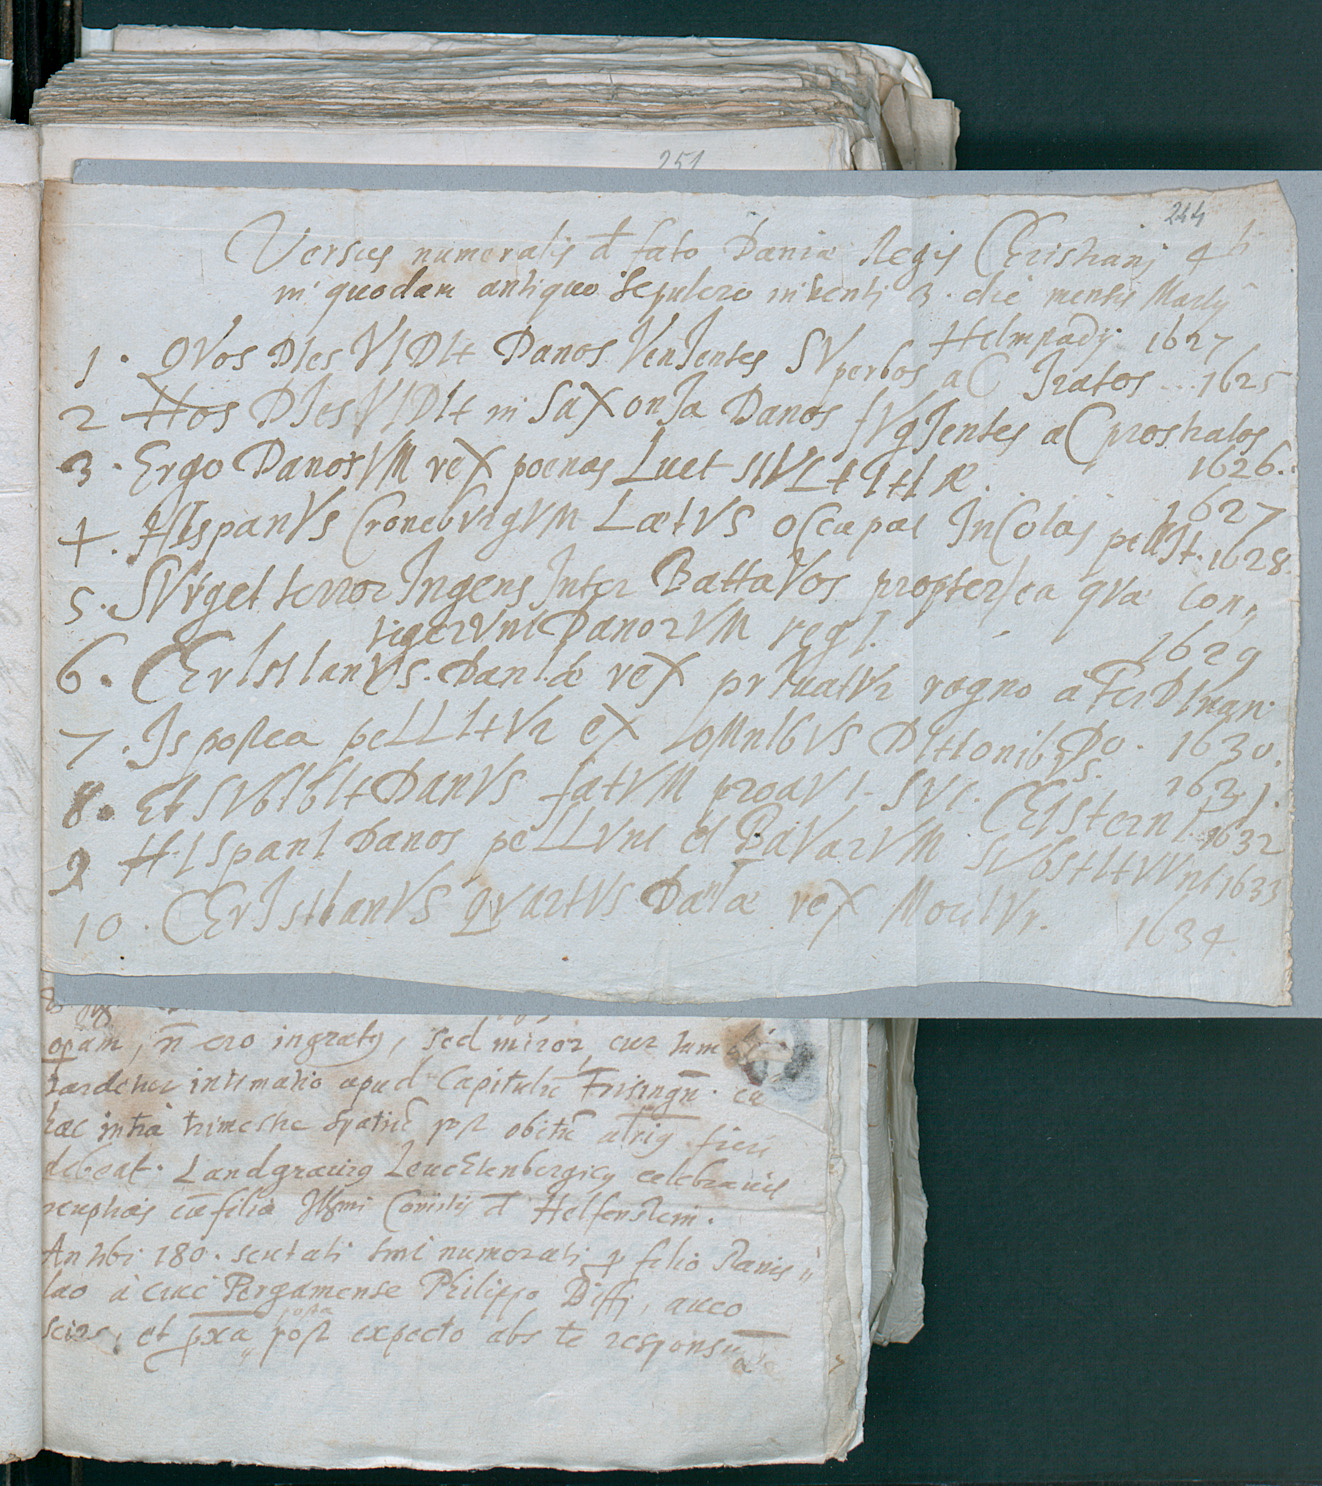 251
244
Versus numeralis d fato Daniæ Regis Christianj 4ti
in quodam antiquo sepulcro inventi 3. die mensis Martij
Helmstadij 1627
1. QVos DIes VIDIt Danos VenIentes SVperbos aC Iratos ... 1625
2 Hos DIes VIDIt in SaXonIa Danos fVgIentes aC prostratos
1626.
3. Ergo DanorVM reX poenas Luet MVLtItIæ.
1627
4. HIspanVs CronebVrgVM LætVs oCcupat InColas pellIt. 1628.
5. SVrget terror Ingens Inter BattaVos propterea qVæ Con„
tigerVnt DanorVM regI.
1629
6. ChrIstIanVs. DanIæ reX prIuatVr regno a FerDInan
Do. 1630.
7. Is postea peLLItVr eX OMnIbVs DItIonibVs.
1631.
8. Et SVbIbIt DanVs fatVM proaVI SVI. ChIsternI. 1632
9 HIspanI Danos peLLVnt et BaVarVM SVbstItVVnt 1633
10. ChrIstIanVS QVartVs Daniæ reX MoritVr. 1634
opam, n ero ingratus, sed miror, cur tam
tardetur intimatio apud Capitulu Frisingn. cu
hæc intra trimestre spatiu post obitu
debeat. Landgravius Leuchtenbergicus celebravit
nuptias cu filia Illmi Comitis d Helfenstein.
An tibi 180. scutati sint numerati p filio Stanis„
lao à cive Pergamense Philippo Diffi, aveo
scire, et pxa
posta
post expecto abs te responsu